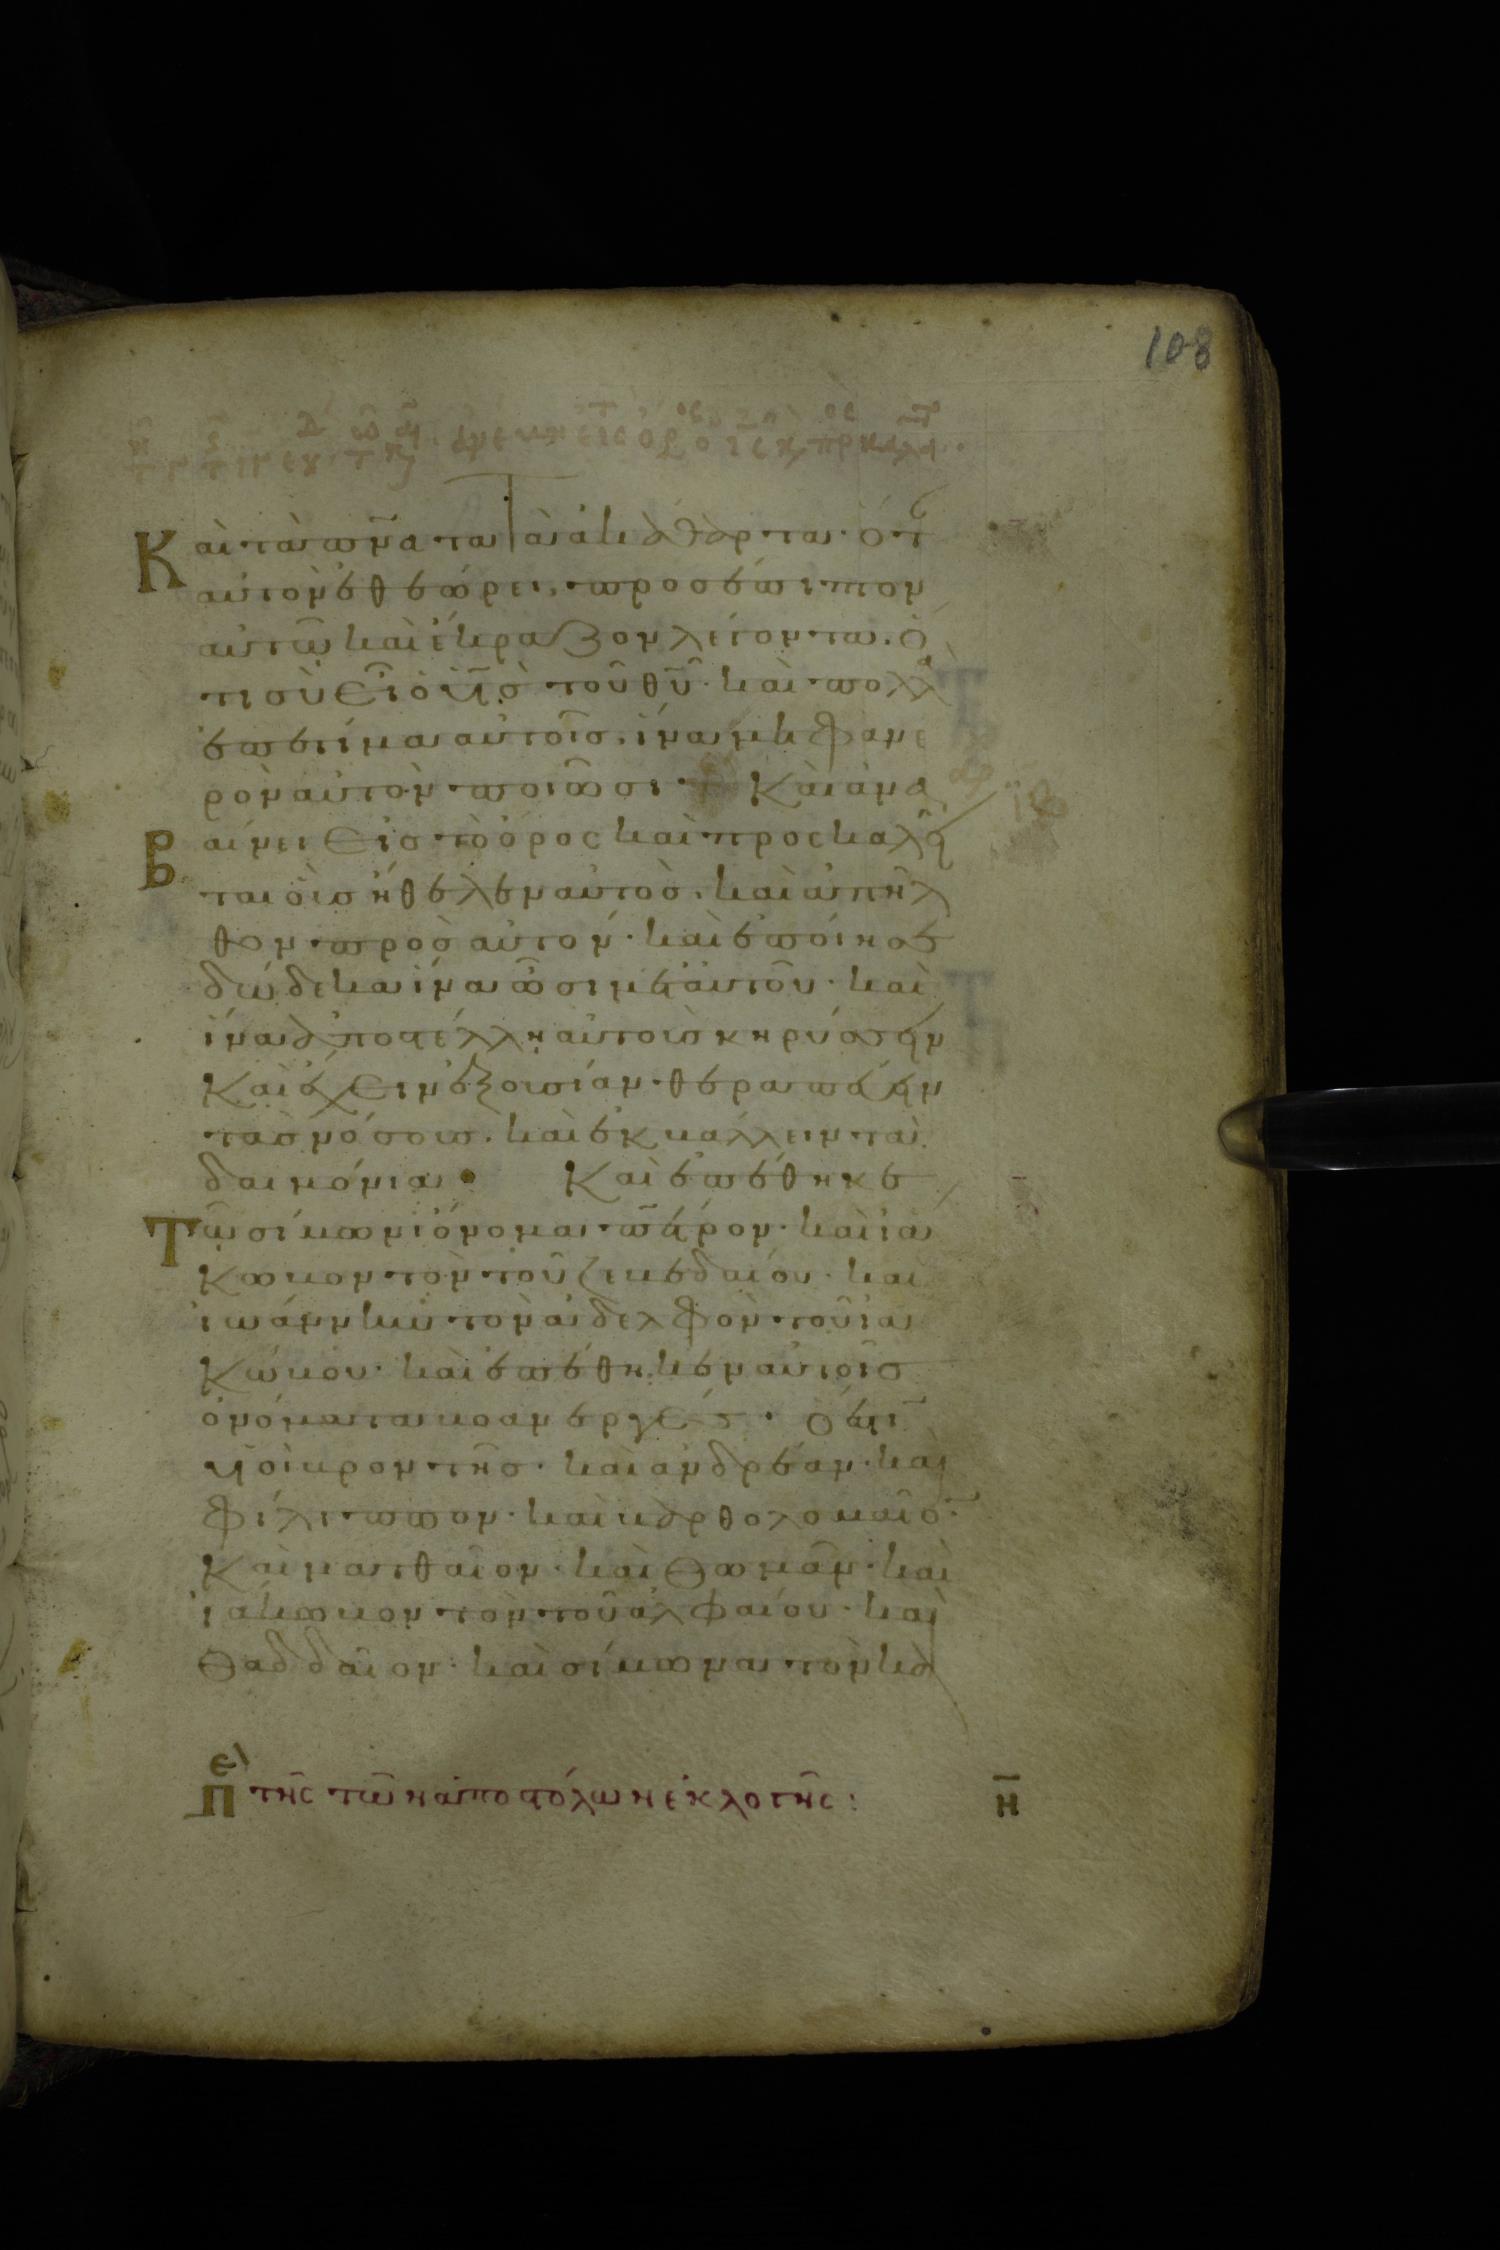 108
Καὶ τὰ πν̅α τὰ ἀκάθαρτα ὅτ
αὐτὸν ἐθεώρει, προσέπιπτον
αὐτῶ καὶ ἔκραζον λέγοντα. ὅ
τι σὺ εἶ ὁ υι̅ς τοῦ θυ̅. καὶ πολλὰ
ἐπετίμα αὐτοῖς, ἵνα μὴ φανε
ρὸν αὐτὸν ποιῶσι Καὶ ἀνα
βαίνει εἰς τὸ ὄρος καὶ προσκαλεῖ
ται οὓς ἤθελεν αὐτὸς, καὶ ἀπῆλ
θον πρὸς αὐτόν. καὶ ἐποίησε
δώδεκα ἵνα ὦσι μετ' αὐτοῦ. καὶ
ἵνα ἀποστέλλη αὐτοὺς κηρύσσειν
Καὶ ἔχειν ἐξουσίαν θεραπεύειν
τὰς νόσους. καὶ ἐκβάλλειν τὰ
δαιμόνια. Καὶ ἐπέθηκε
Τῶ σίμωνι ὄνομα πέτρον. καὶ ἰά
κωβον τὸν τοῦ ζεβεδαίου. καὶ
ἰωάννην τὸν ἀδελφὸν τοῦ ἰα
κώβου. καὶ ἐπέθηκεν αὐτοῖς
ὀνόματα βοανεργές. ὅ ἐστιν
υἱοὶ βροντῆς. καὶ ἀνδρέαν. καὶ
φίλιππον. καὶ βαρθολομαῖον.
Καὶ ματθαῖον. καὶ θωμᾶν. καὶ
ἰάκωβον τὸν τοῦ ἀλφαίου. καὶ
θαδδαῖον. καὶ σίμωνα τὸν κα
Πε τῆς τῶν ἀποστόλων ἐκλογῆς: η̅